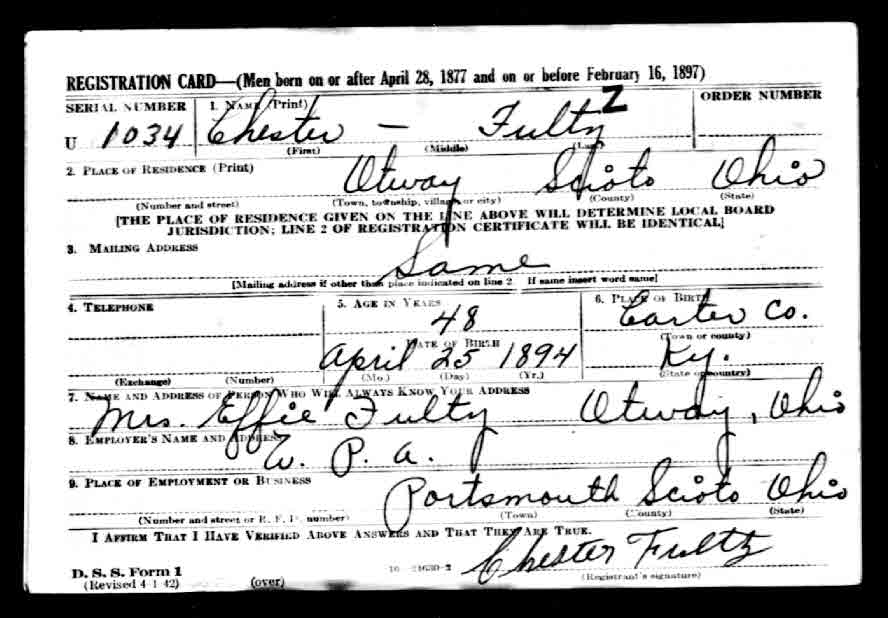 REGISTRATION CARD—(Men born on or after April 28, 1877 and on or before February 16, 1897)
SERIAL NUMBER 1. NAME (Print) ORDER NUMBER
U 1034 Chester — Fultz Z
(First) (Middle) (Last)
2. PLACE OF RESIDENCE (Print)
Otway Scioto Ohio
(Number and street) (Town, township, village or city) (County) (State)
[THE PLACE OF RESIDENCE GIVEN ON THE LINE ABOVE WILL DETERMINE LOCAL BOARD
JURISDICTION; LINE 2 OF REGISTRATION CERTIFICATE WILL BE IDENTICAL]
3. MAILING ADDRESS
Same
[Mailing address if other than place indicated on line 2. If same insert word same]
4. TELEPHONE 5. AGE IN YEARS 6. PLACE OF BIRTH
48 Carter Co.
DATE OF BIRTH (Town or county)
April 25 1894 Ky.
(Exchange) (Number) (Mo.) (Day) (Yr.) (State or country)
7. NAME AND ADDRESS OF PERSON WHO WILL ALWAYS KNOW YOUR ADDRESS
Mrs. Effie Fultz Otway, Ohio
8. EMPLOYER'S NAME AND ADDRESS
W. P. A.
9. PLACE OF EMPLOYMENT OR BUSINESS
Portsmouth Scioto Ohio
(Number and street or R. F. D. number) (Town) (County) (State)
I AFFIRM THAT I HAVE VERIFIED ABOVE ANSWERS AND THAT THEY ARE TRUE.
Chester Fultz
D. S. S. Form 1 16—21630-2 (Registrant's signature)
(Revised 4-1-42) (over)